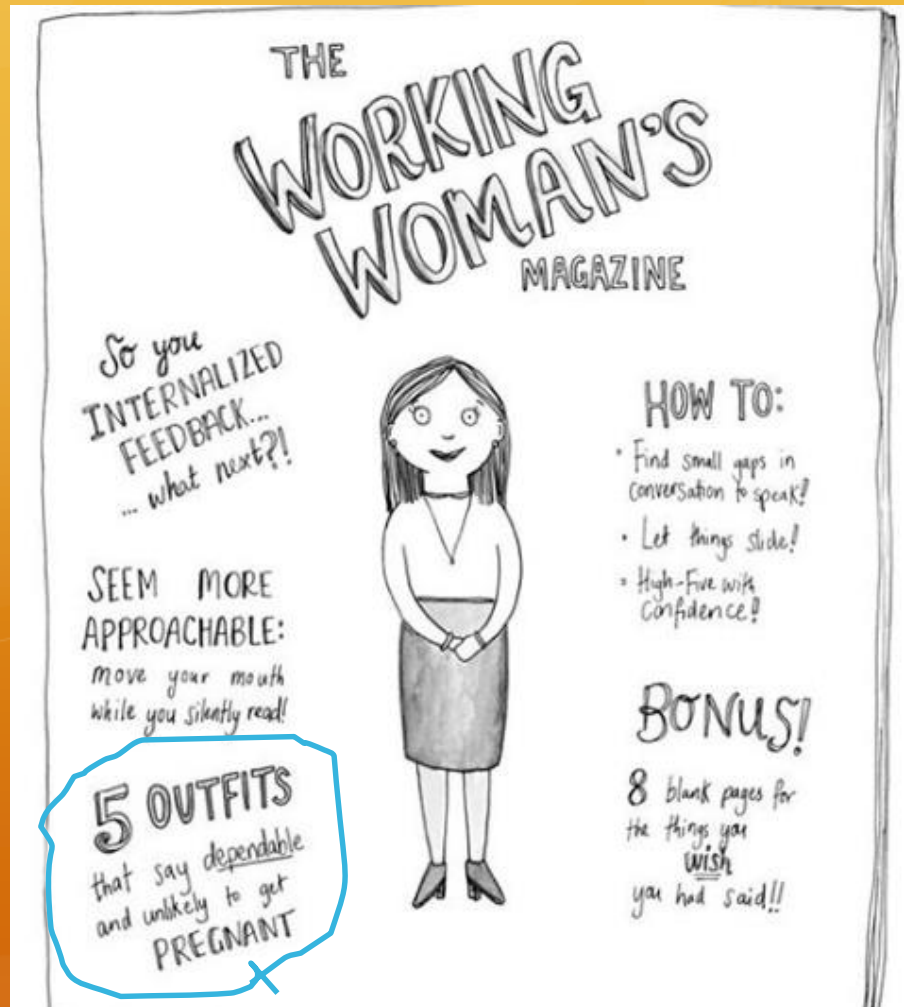 THE
WORKING
WOMAN'S
MAGAZINE
So you
INTERNALIZED
FEEDBACK...
... what next?!
SEEM MORE
APPROACHABLE:
move your mouth
while you silently read!
5 OUTFITS
that say dependable
and unlikely to get
PREGNANT
HOW TO:
• Find small gaps in
conversation to speak!
• Let things slide!
• High-Five with
Confidence!
BONUS!
8 blank pages for
the things you
wish
you had said!!